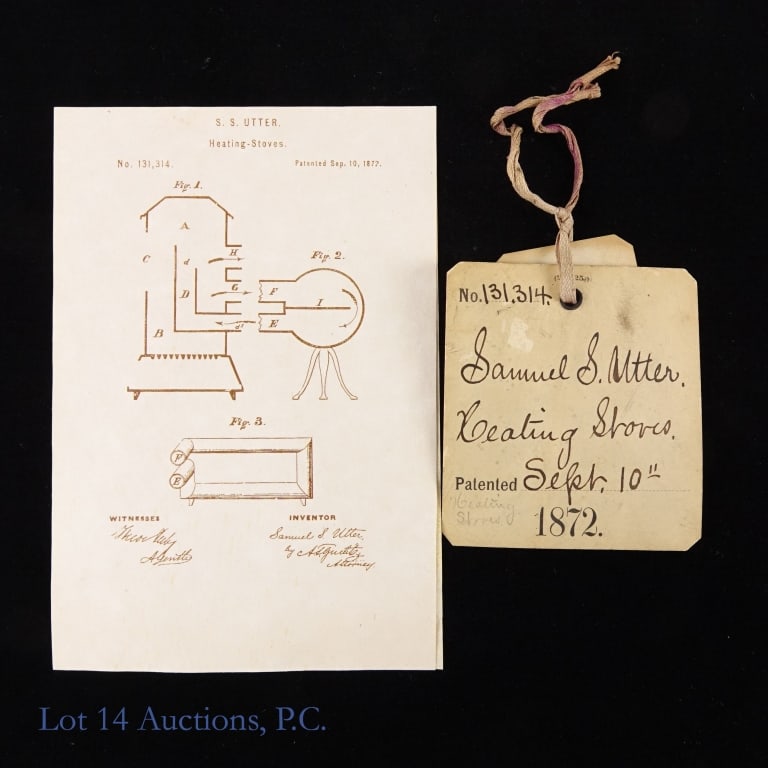 S. S. UTTER.
Heating-Stoves.
No. 131,314.
Patented Sep. 10, 1872.
Fig. 1.
A
C
H
d
G
D
B
d'
Fig. 2.
F
I
E
Fig. 3.
F
E
WITNESSES
INVENTOR
Samuel S. Utter.
by
Attorney
No. 131,314.
Samuel S. Utter.
Heating Stoves.
Patented Sept. 10"
Heating
Stoves.
1872.
Lot 14 Auctions, P.C.